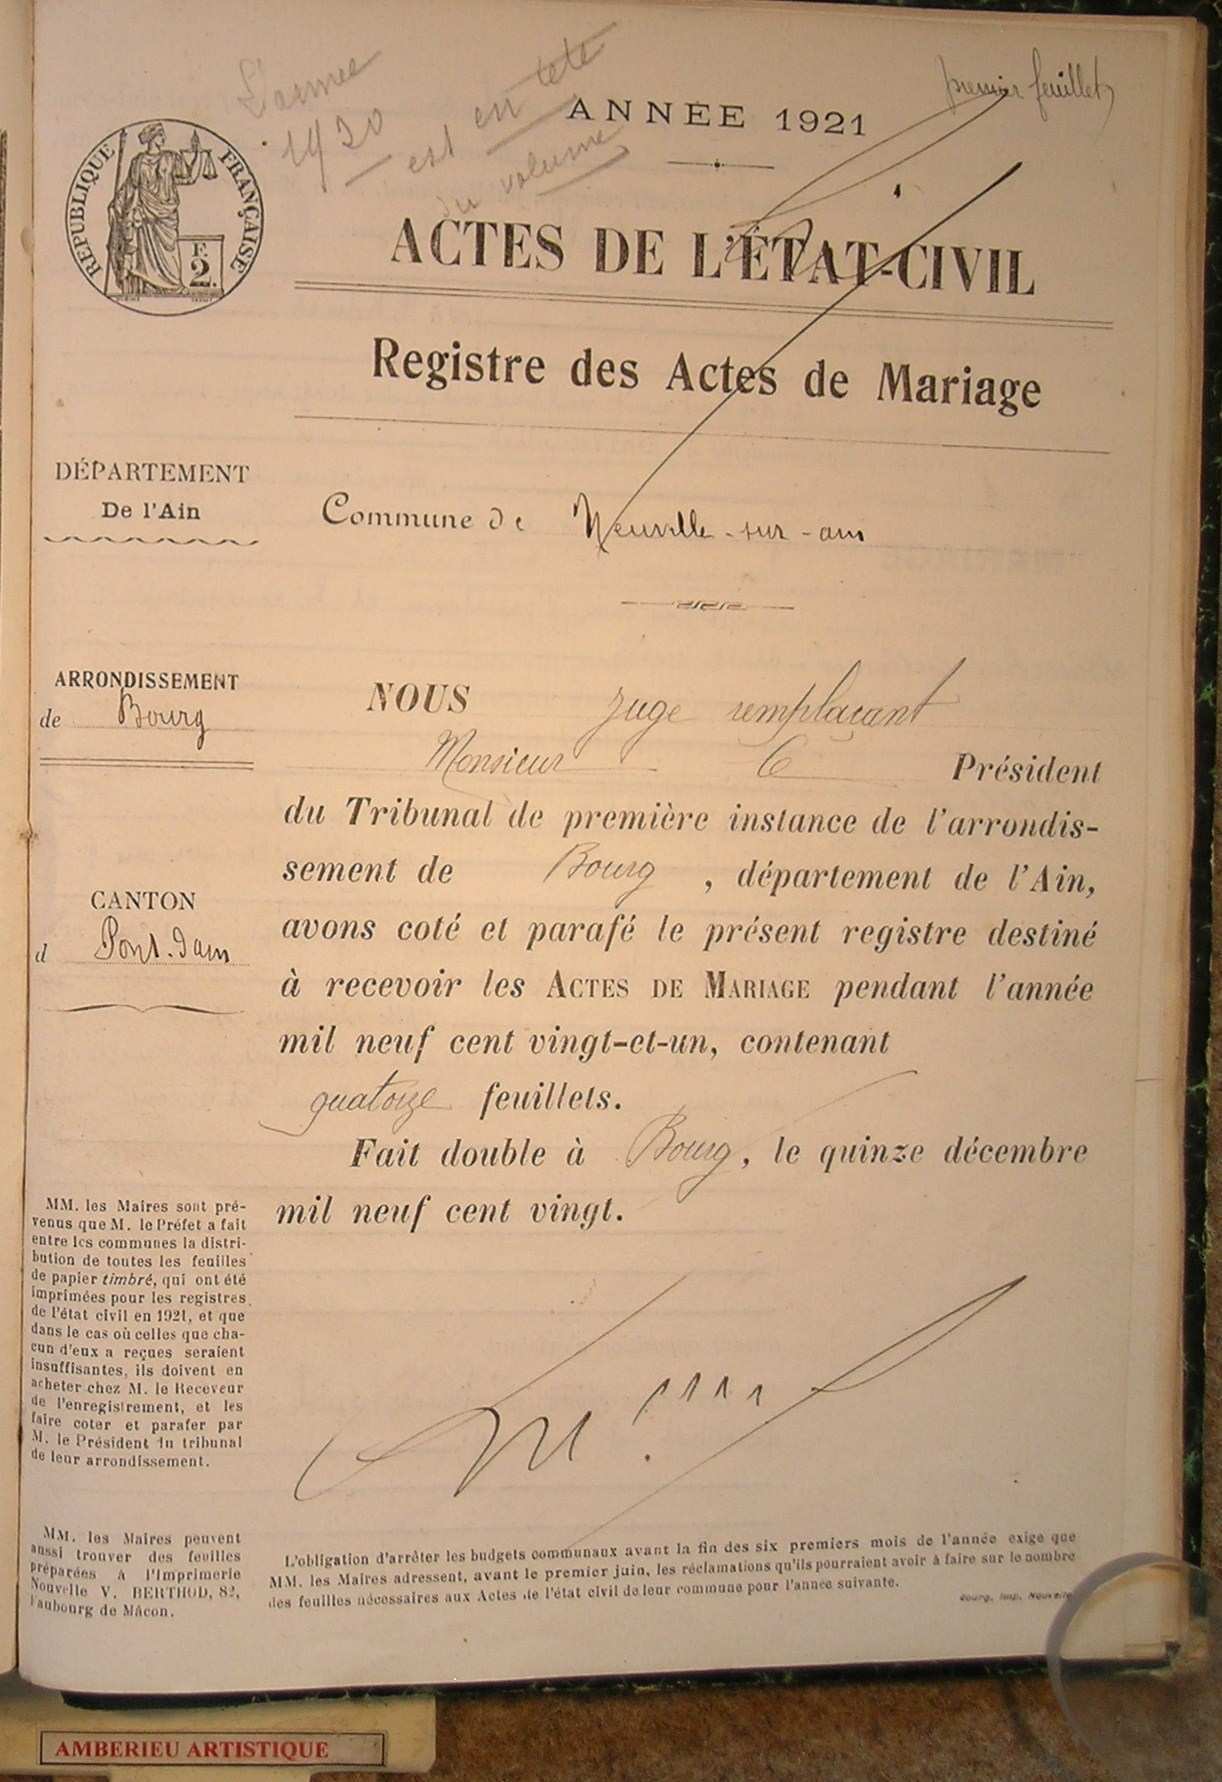 L'année
1920
est en tête
du volume
premier feuillet
ANNÉE 1921
RÉPUBLIQUE FRANÇAISE
F.
2.
ACTES DE L'ÉTAT-CIVIL
Registre des Actes de Mariage
DÉPARTEMENT
De l'Ain
Commune de Neuville-sur-ain
ARRONDISSEMENT
de Bourg
CANTON
d Pont-dain
NOUS juge remplaçant
Monsieur le Président
du Tribunal de première instance de l'arrondis-
sement de Bourg, département de l'Ain,
avons coté et parafé le présent registre destiné
à recevoir les ACTES DE MARIAGE pendant l'année
mil neuf cent vingt-et-un, contenant
quatorze feuillets.
Fait double à Bourg, le quinze décembre
mil neuf cent vingt.
MM. les Maires sont pré-
venus que M. le Préfet a fait
entre les communes la distri-
bution de toutes les feuilles
de papier timbré, qui ont été
imprimées pour les registres
de l'état civil en 1921, et que
dans le cas où celles que cha-
cun d'eux a reçues seraient
insuffisantes, ils doivent en
acheter chez M. le Receveur
de l'enregistrement, et les
faire coter et parafer par
M. le Président du tribunal
de leur arrondissement.
MM. les Maires peuvent
aussi trouver des feuilles
préparées à l'Imprimerie
Nouvelle V. BERTHOD, 82,
faubourg de Mâcon.
L'obligation d'arrêter les budgets communaux avant la fin des six premiers mois de l'année exige que
MM. les Maires adressent, avant le premier juin, les réclamations qu'ils pourraient avoir à faire sur le nombre
des feuilles nécessaires aux Actes de l'état civil de leur commune pour l'année suivante.
Bourg, Imp. Nouvelle
AMBERIEU ARTISTIQUE